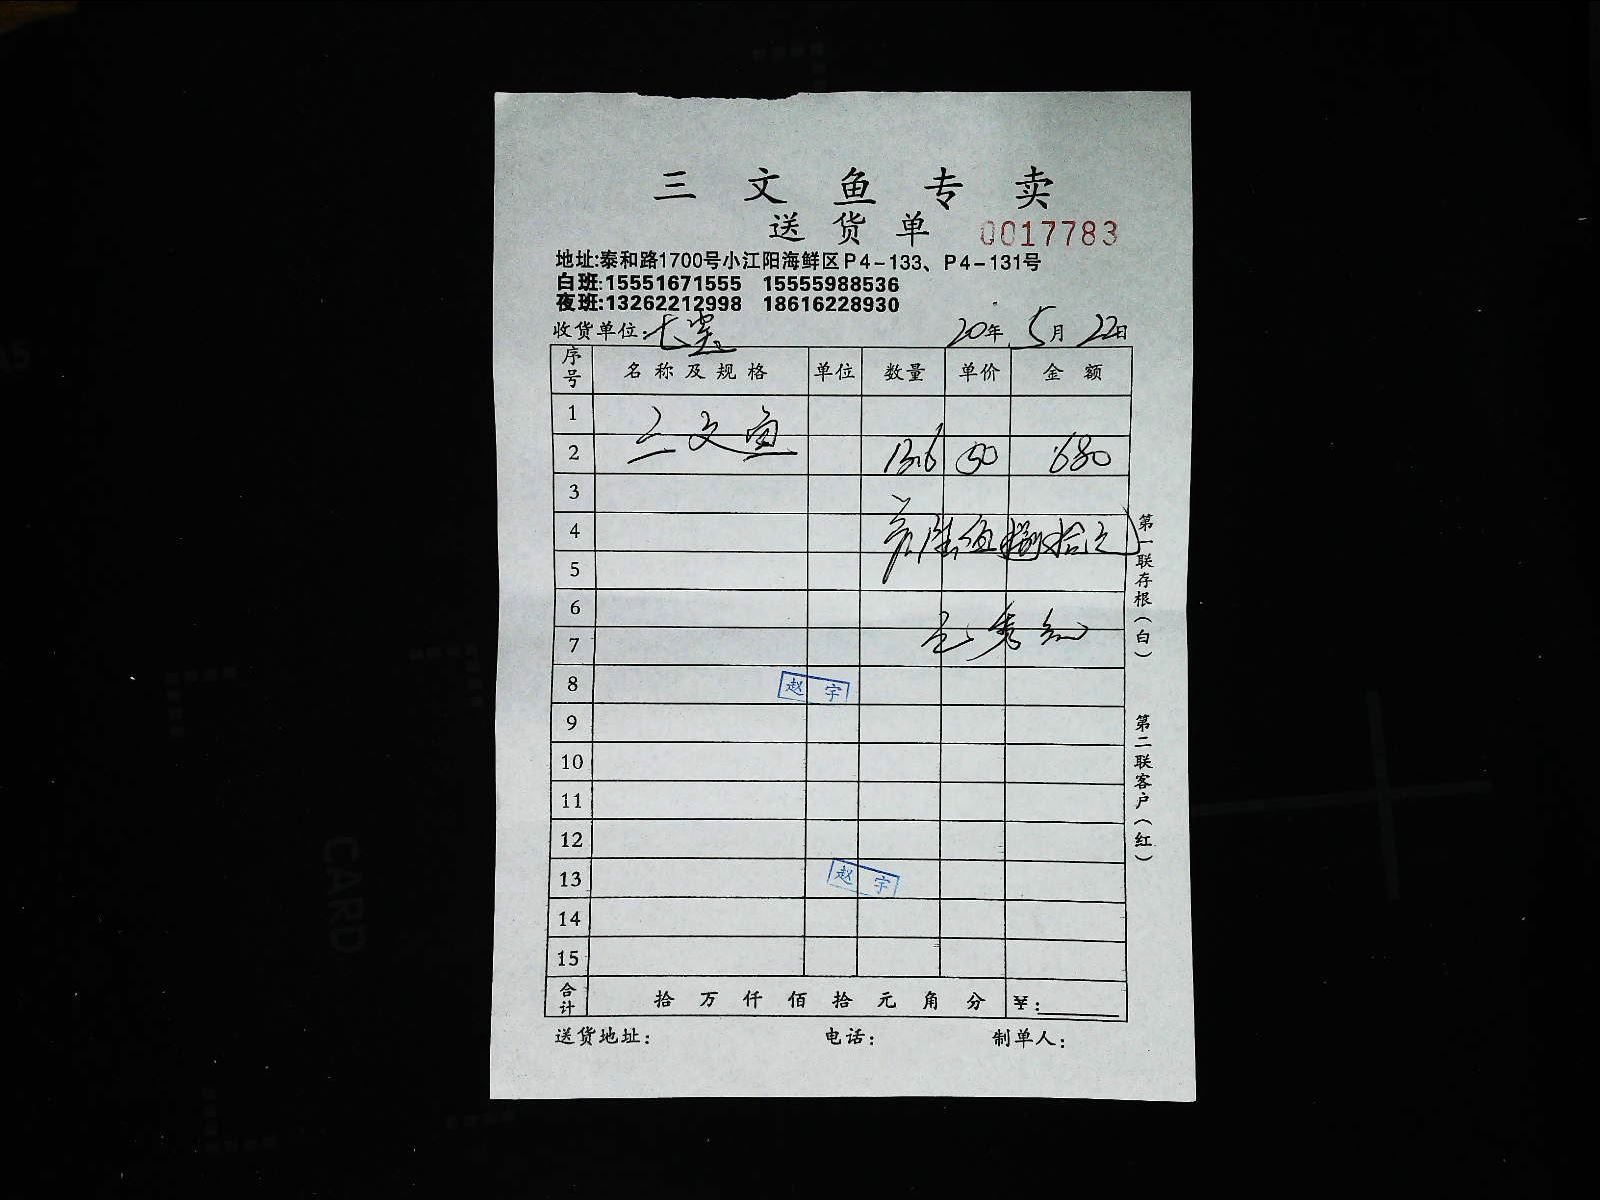 三文鱼专卖
送货单 0017783
地址:泰和路1700号小江阳海鲜区P4-133、P4-131号
白班:15551671555 15555988536
夜班:13262212998 18616228930
收货单位: 20年5月22日
序号 名称及规格 单位 数量 单价 金额
1
三文鱼
2 13.6 50 680
3
4
5
6
7
8 赵宇
9
10
11
12
13 赵宇
14
15
合计 拾万仟佰拾元角分 ¥:
送货地址: 电话: 制单人:
第一联存根(白)
第二联客户(红)